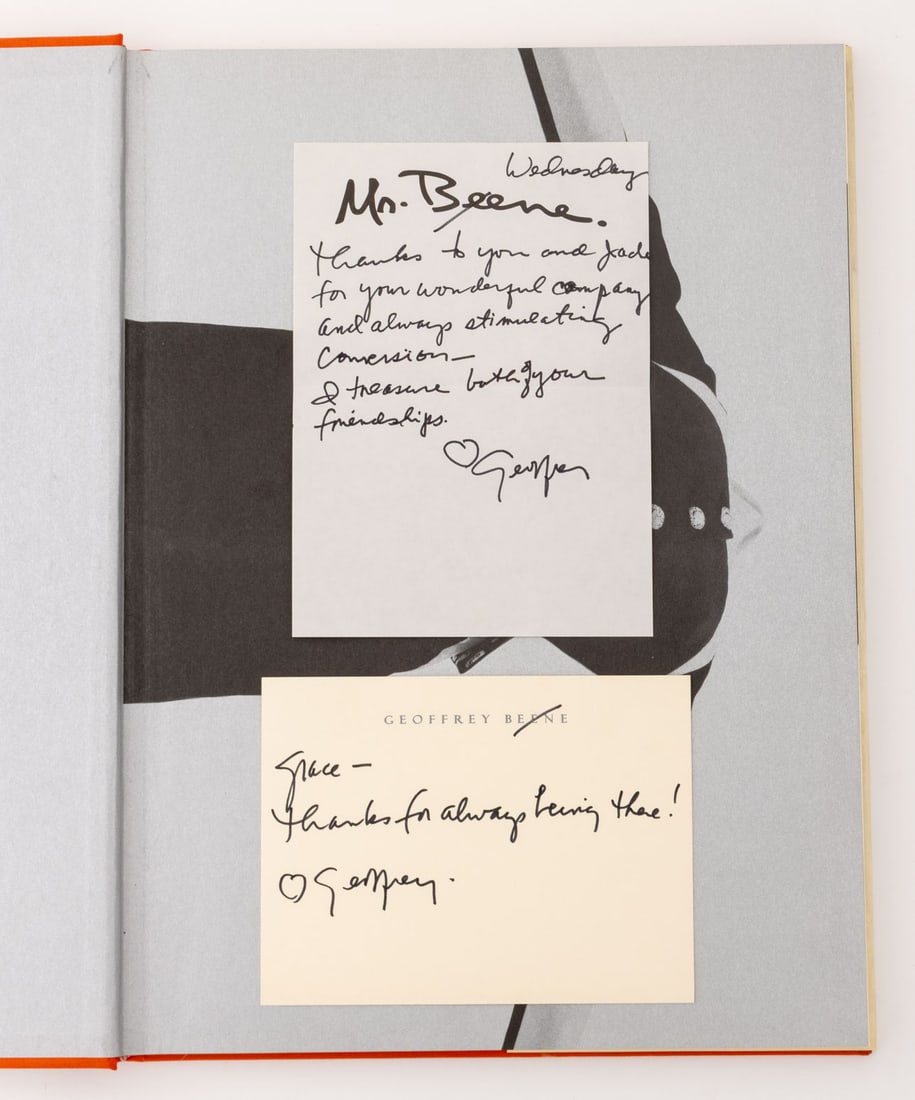 Wednesday
Mr. Beene.
Thanks to you and Jade
for your wonderful company
and always stimulating
Conversion—
I treasure both of your
friendships.
♡ Geoffrey
GEOFFREY BEENE
Grace —
Thanks for always being there!
♡ Geoffrey.